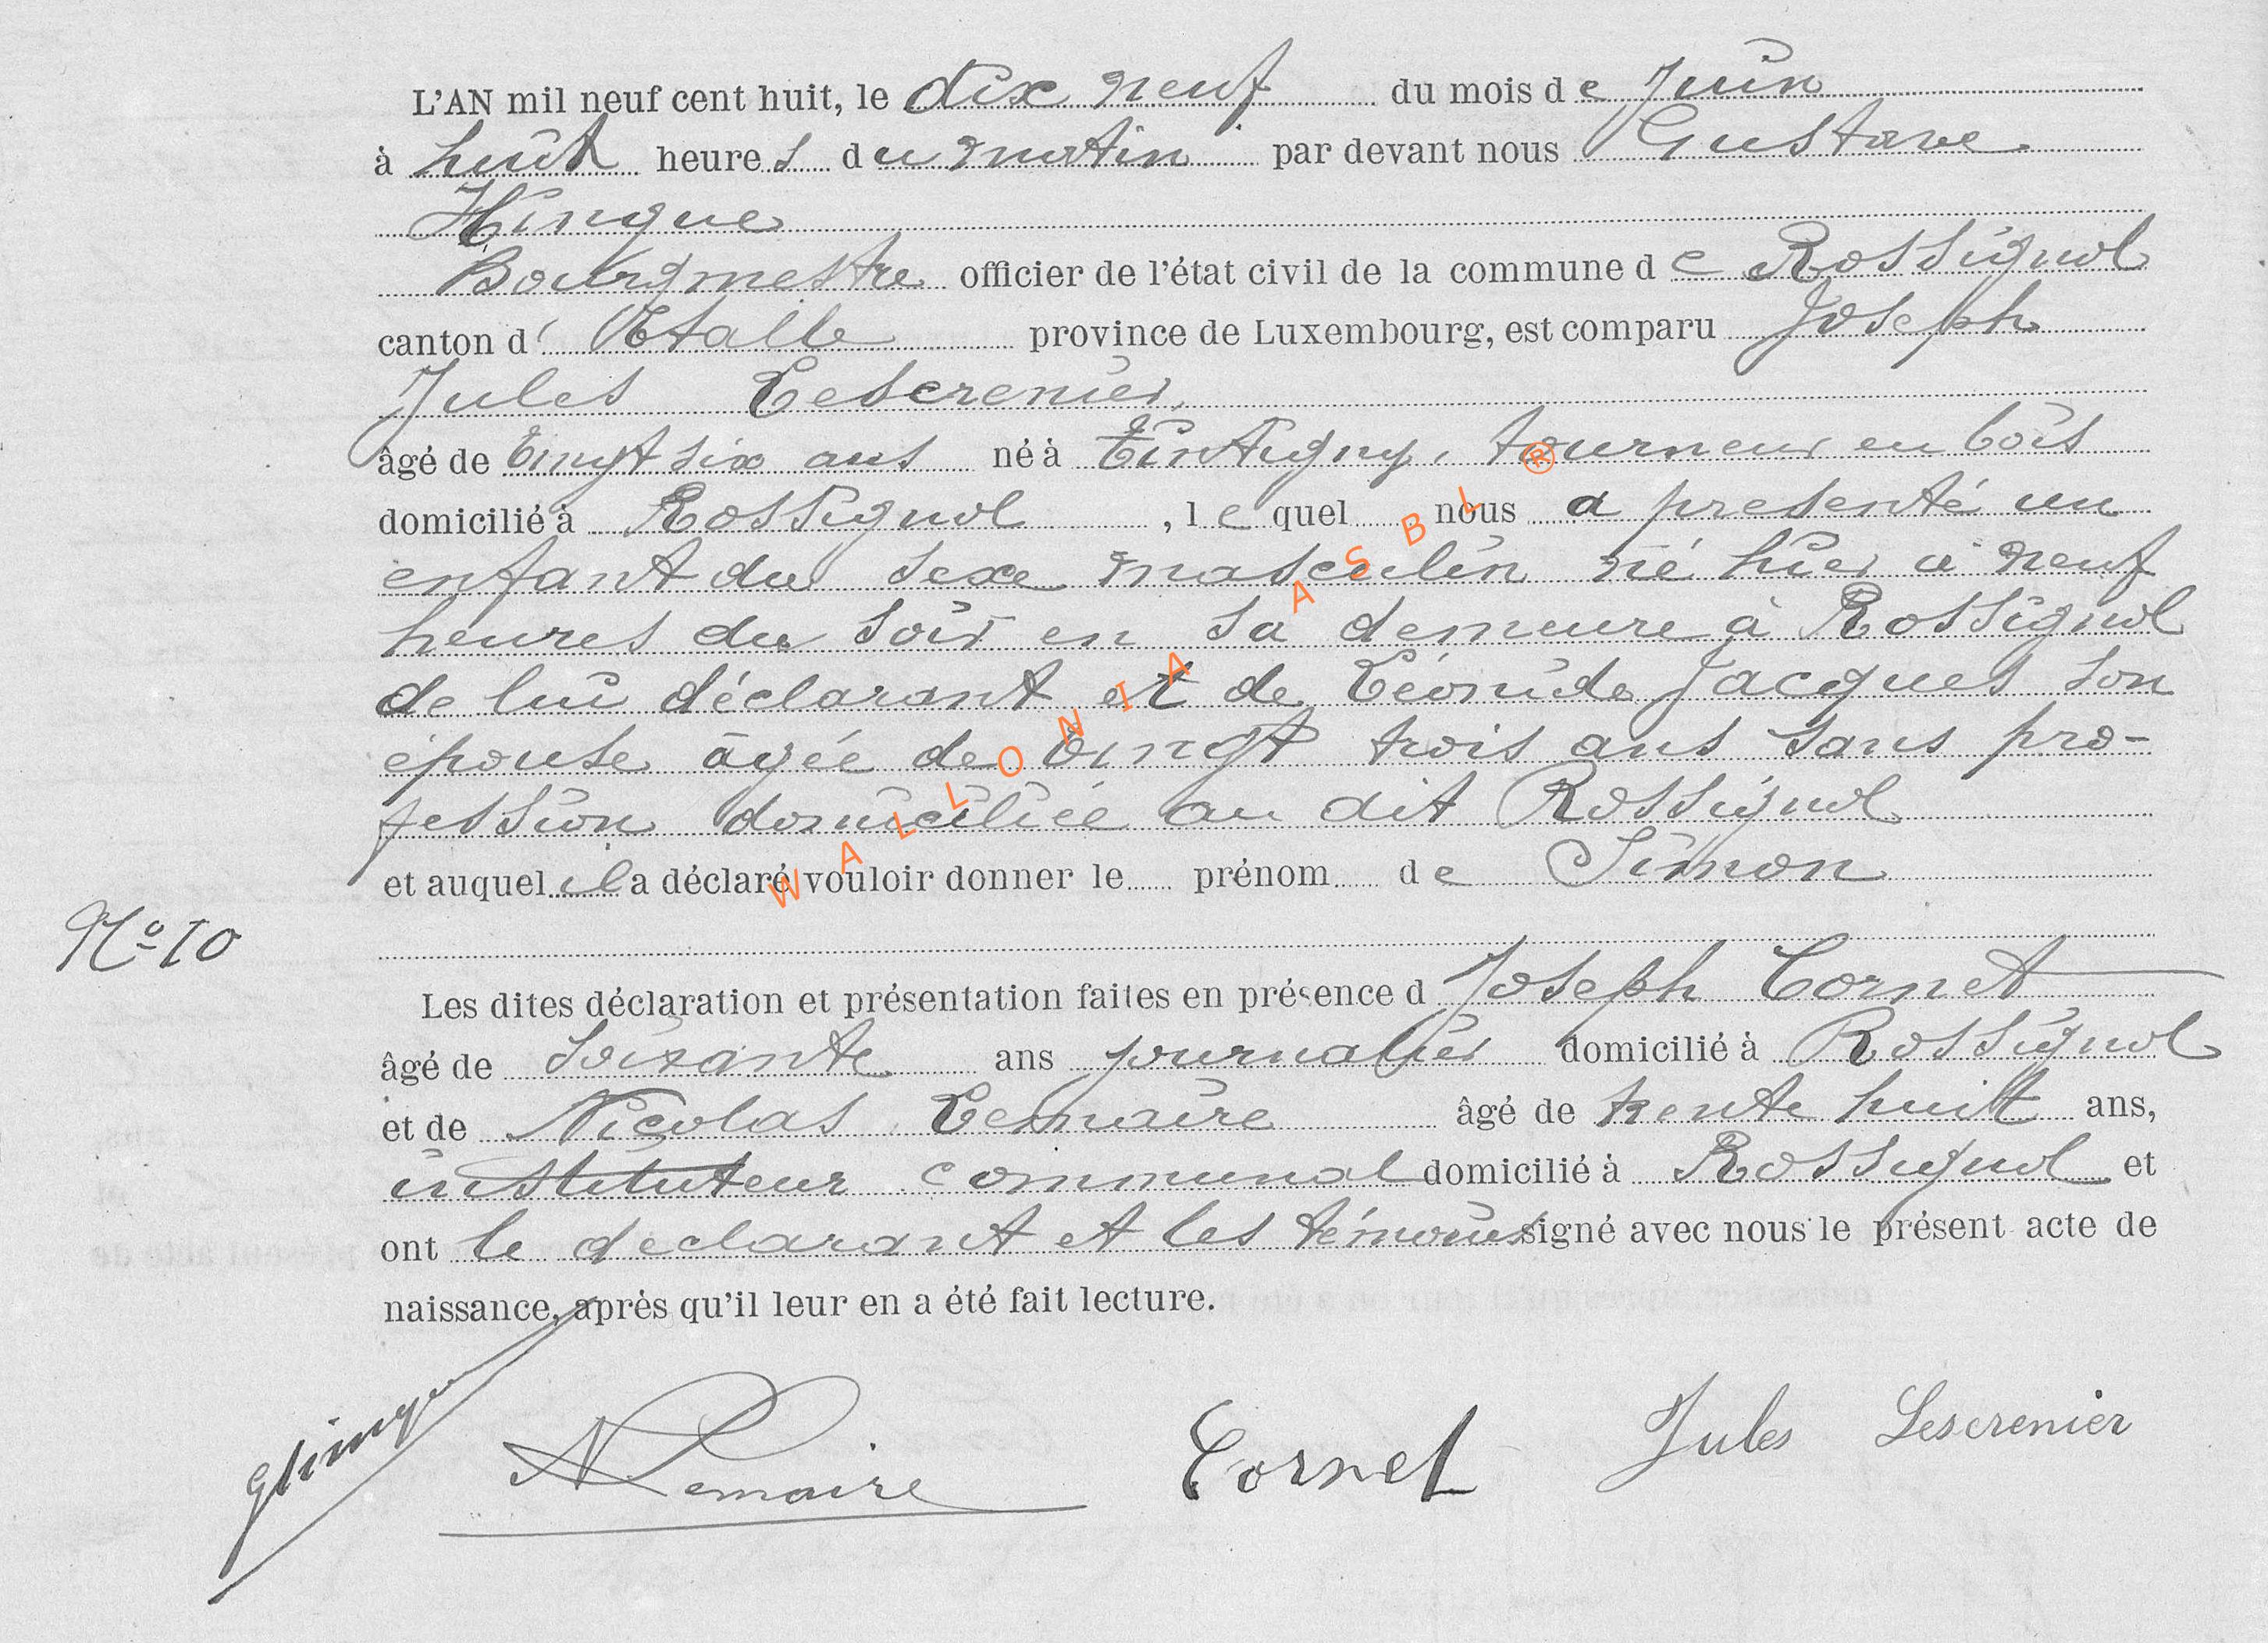 L'AN mil neuf cent huit, le dix neuf du mois de Juin
à huit heures du matin par devant nous Gustave
Hinque
Bourgmestre officier de l'état civil de la commune de Rossignol
canton d' Etalle province de Luxembourg, est comparu Joseph
Jules Lescrenier
âgé de vingt six ans né à Tintigny, tourneur en bois
domicilié à Rossignol, lequel nous a presenté un
enfant du sexe masculin né hier à neuf
heures du soir en sa demeure à Rossignol
de lui déclarant et de Léonide Jacques son
épouse âgée de vingt trois ans sans pro-
fession domiciliée au dit Rossignol
et auquel il a déclaré vouloir donner le prénom de Simon
No 10
Les dites déclaration et présentation faites en présence d Joseph Cornet
âgé de soixante ans journalier domicilié à Rossignol
et de Nicolas Lemaire âgé de trente huit ans,
instituteur communal domicilié à Rossignol et
ont le declarant et les témoins signé avec nous le présent acte de
naissance, après qu'il leur en a été fait lecture.
GHinque
N Lemaire
Cornet
Jules Lescrenier
WALLONIA ASBL ®